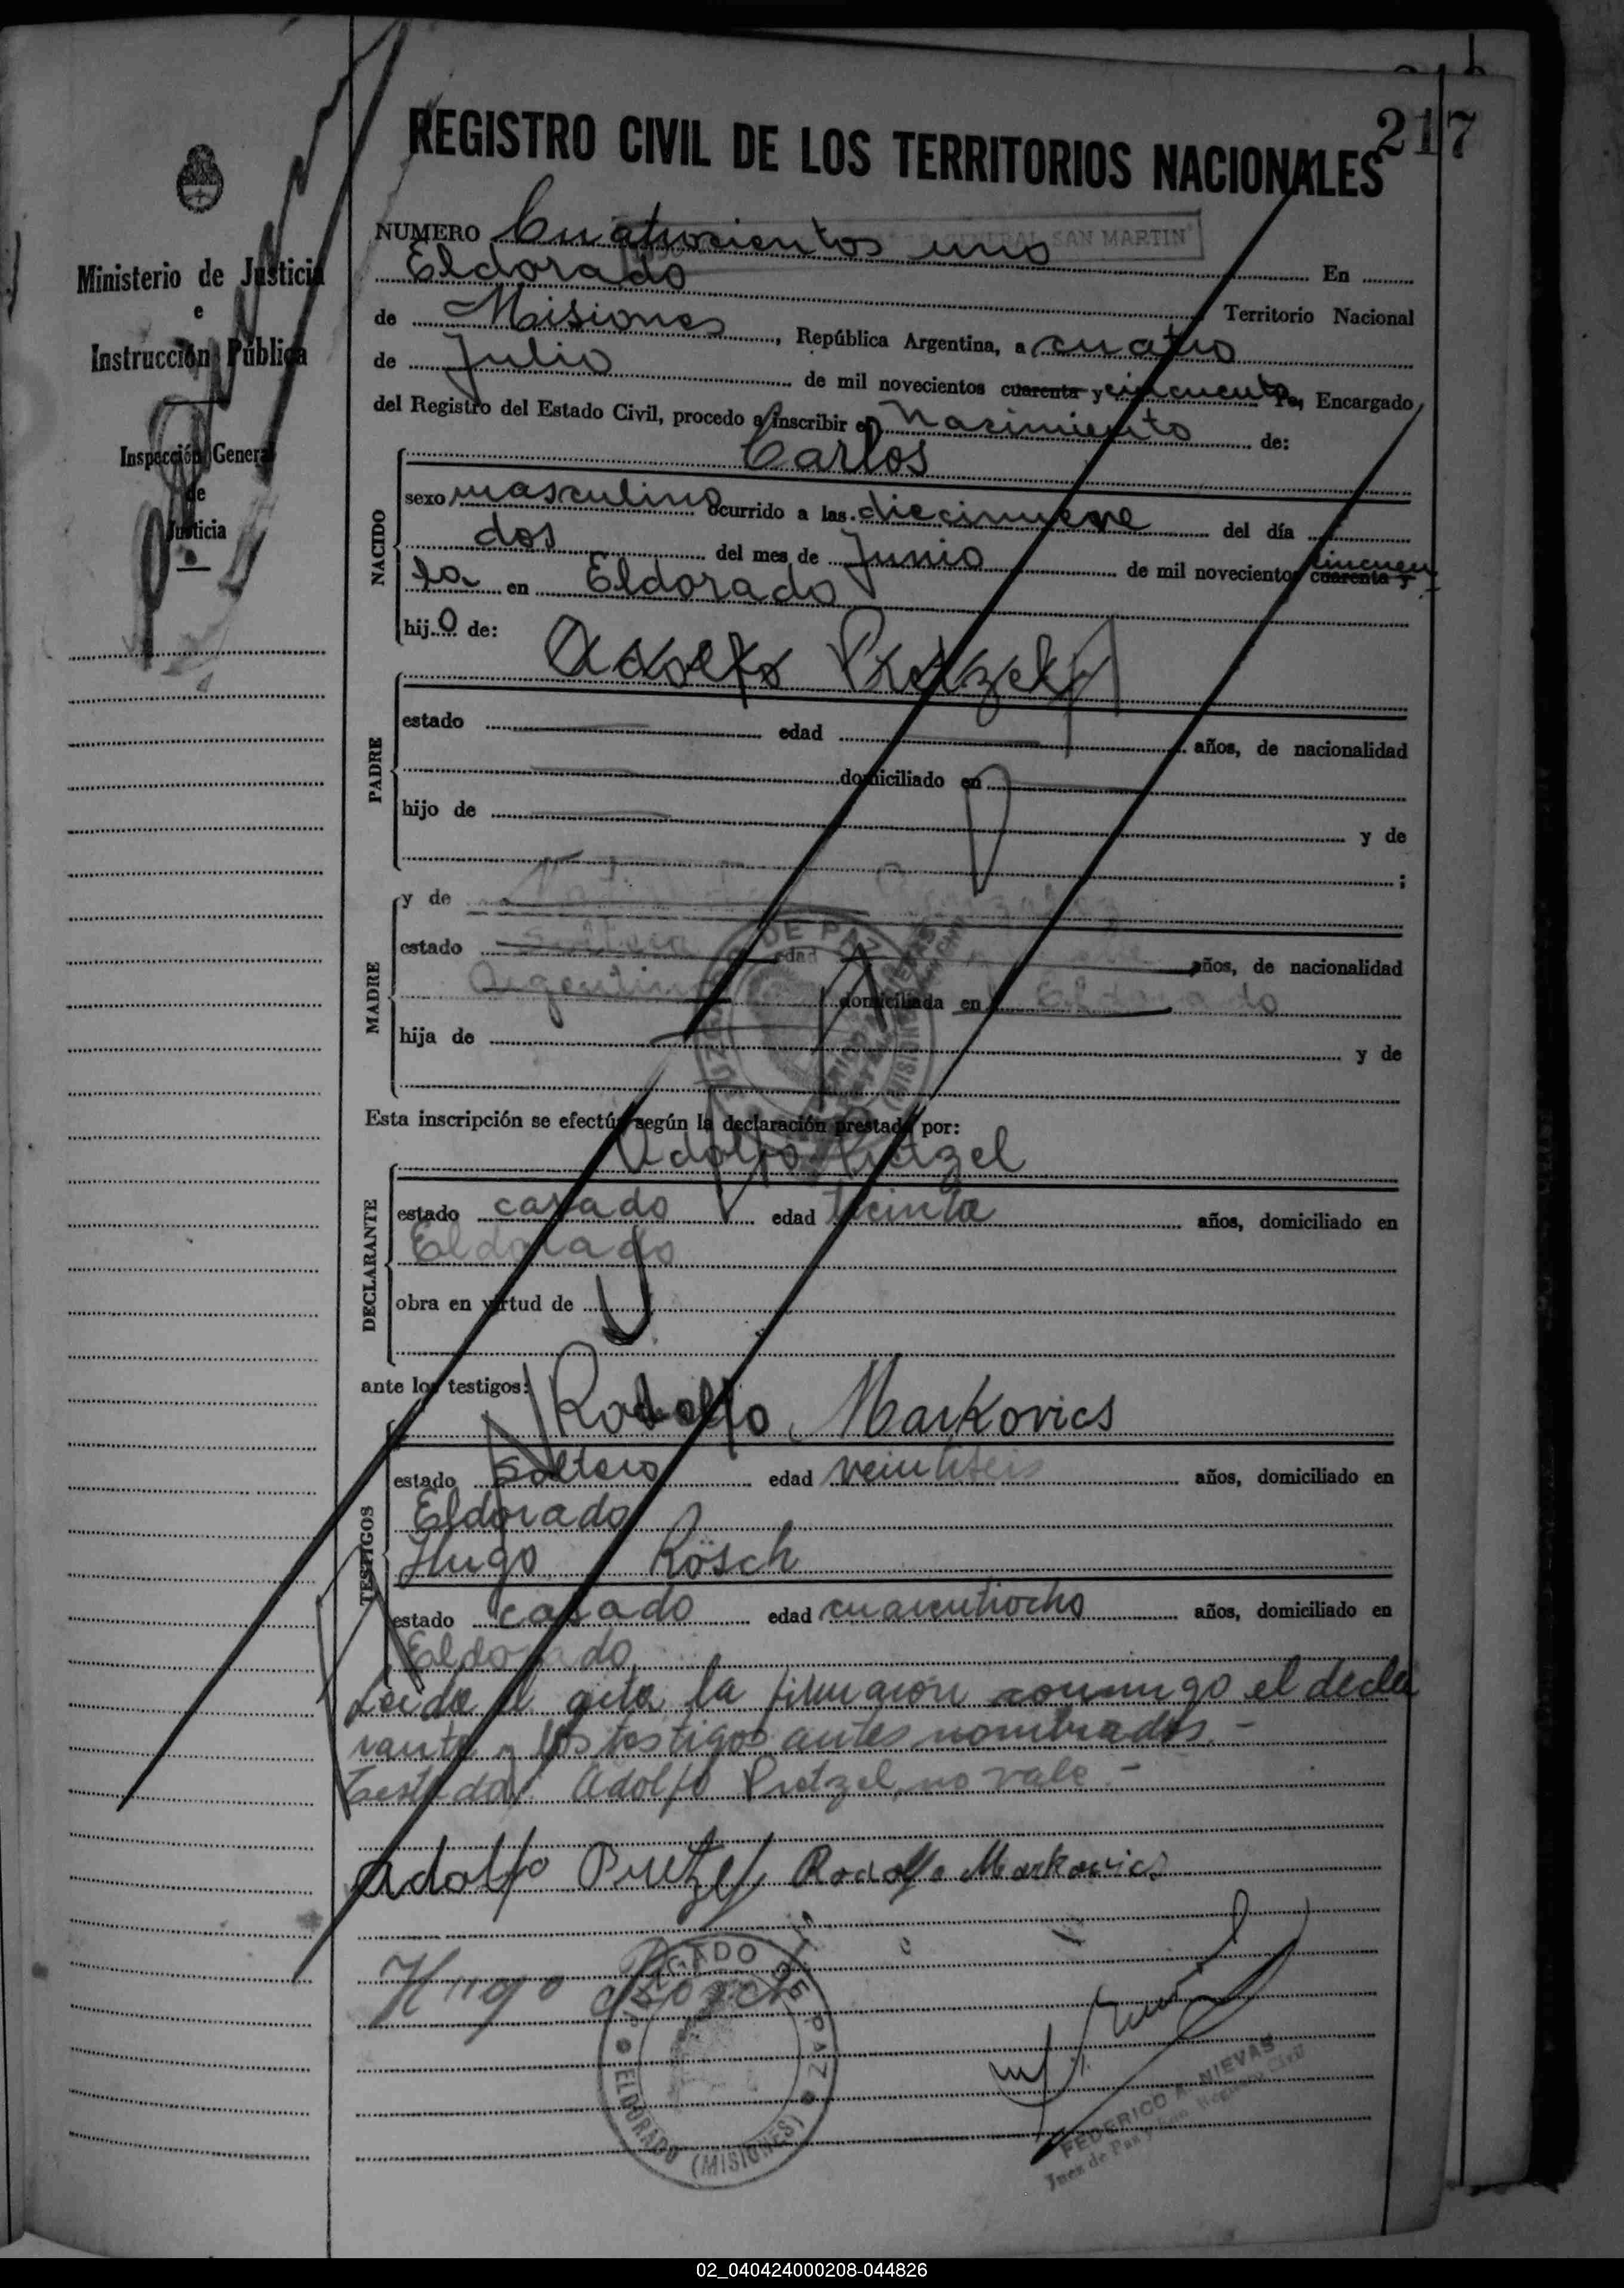 217
REGISTRO CIVIL DE LOS TERRITORIOS NACIONALES
Ministerio de Justicia
e
Instrucción Pública
Inspección General
de
Justicia
GENERAL SAN MARTIN
NUMERO Cuatrocientos uno En
Eldorado Territorio Nacional
de Misiones, República Argentina, a cuatro
de Julio de mil novecientos cuarenta y cincuenta Yo, Encargado
del Registro del Estado Civil, procedo a inscribir el Nacimiento de:
Carlos
NACIDO
sexo masculino ocurrido a las diecinueve del día
dos del mes de Junio de mil novecientos cuarenta y cincuen
ta en Eldorado
hijo de:
Adolfo Pretzel
PADRE
estado edad años, de nacionalidad
domiciliado en
hijo de y de
;
MADRE
y de
estado soltera edad años, de nacionalidad
Argentina domiciliada en Eldorado
hija de y de
Esta inscripción se efectúa según la declaración prestada por:
Adolfo Pretzel
DECLARANTE
estado casado edad treinta años, domiciliado en
Eldorado
obra en virtud de
ante los testigos:
Rodolfo Markovics
TESTIGOS
estado soltero edad veintiseis años, domiciliado en
Eldorado
Hugo Rösch
estado casado edad cuarentiocho años, domiciliado en
Eldorado
Leida el acta la firmaron conmigo el decla
rante y los testigos antes nombrados.-
Testado: Adolfo Pretzel, no vale.-
Adolfo Pretzel Rodolfo Markovics
Hugo Rösch
JUZGADO DE PAZ
ELDORADO (MISIONES)
FEDERICO A. NIEVAS
Juez de Paz y Enc. Registro Civil
02_040424000208-044826